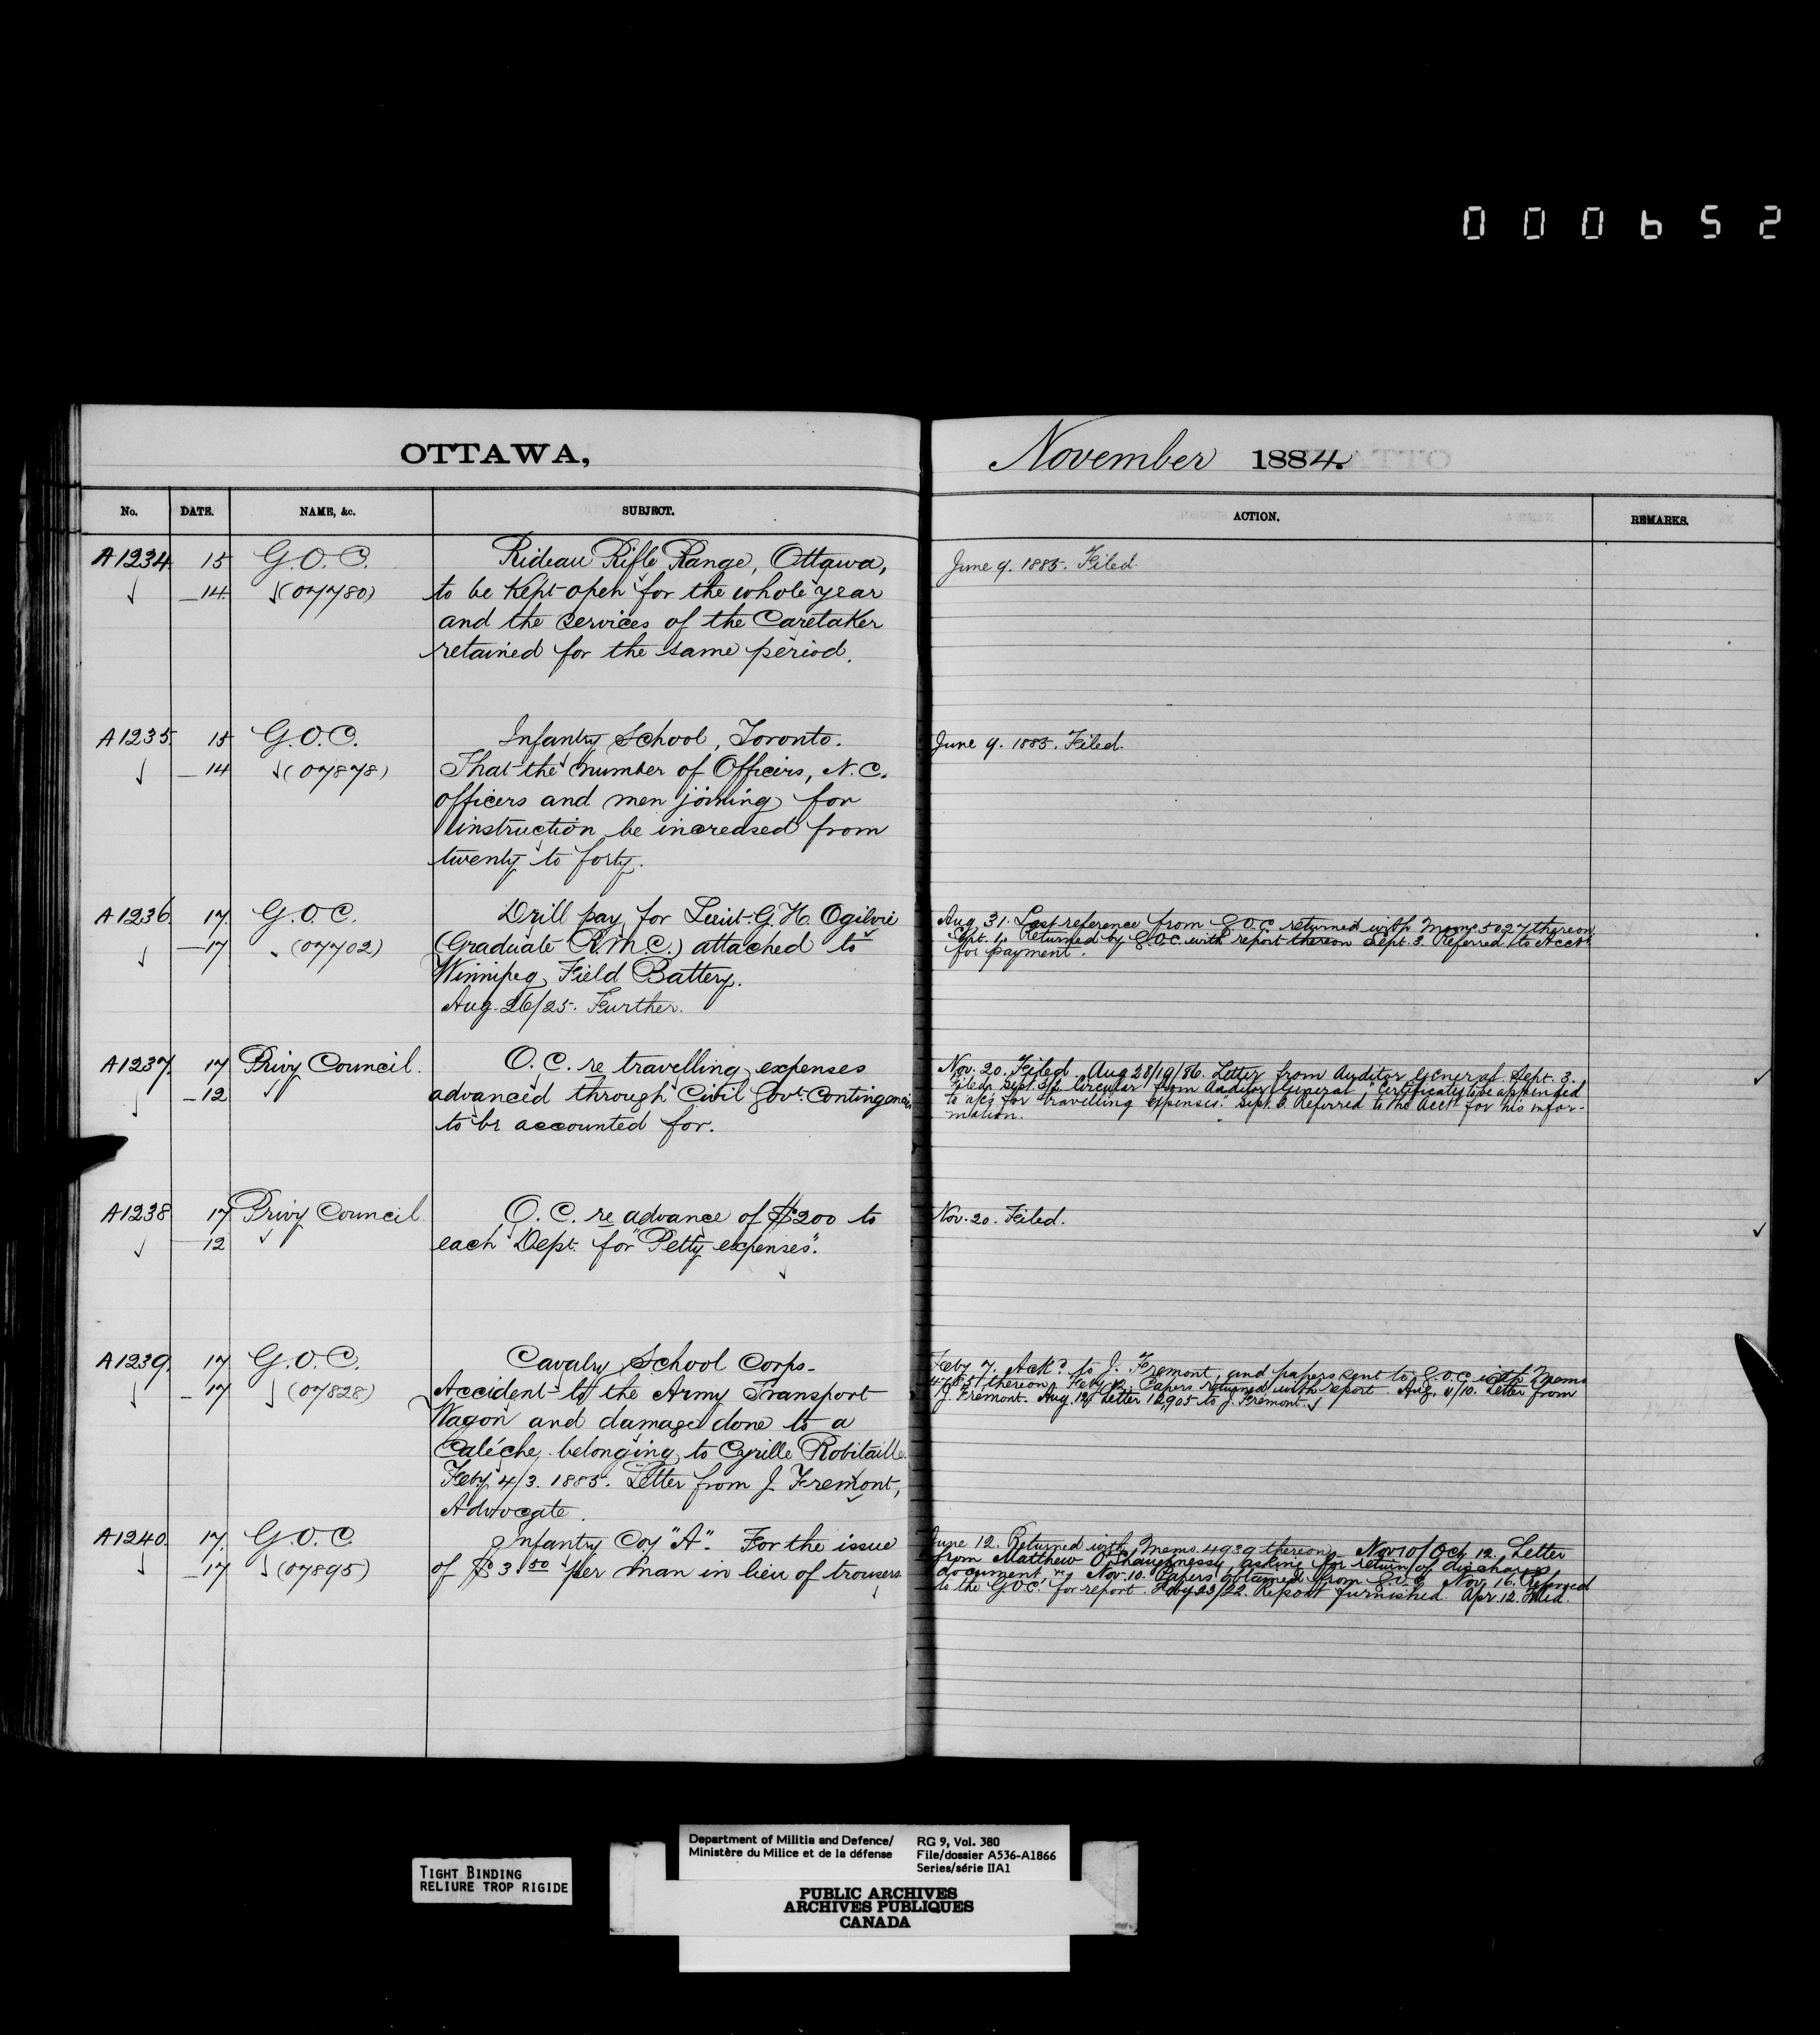 000652
OTTAWA,
November 1884.
No. DATE. NAME, &c. SUBJECT. ACTION. REMARKS.
A1234 15 G.O.C. Rideau Rifle Range, Ottawa,
14 (07780) to be kept open for the whole year
and the services of the Caretaker
retained for the same period.
June 9. 1885. Filed.
A1235 15 G.O.C. Infantry School, Toronto.
14 (07878) That the number of Officers, N.C.
officers and men joining for
instruction be increased from
twenty to forty.
June 9. 1885. Filed.
A1236 17 G.O.C. Drill pay for Lieut. G. H. Ogilvie
17 (07702) (Graduate R.M.C.) attached to
Winnipeg Field Battery.
Aug. 26/25. Further.
Aug. 31. Last reference from G.O.C. returned with Memo 5027 thereon
Sept. 1. Returned by G.O.C. with report thereon Sept. 3. Referred to Acct.
for payment.
A1237 17 Privy Council. O.C. re travelling expenses
12 advanced through Civil Govt. Contingencies
to be accounted for.
Nov. 20. Filed. Aug 28/19/86. Letter from Auditor General Sept. 3.
Filed. Sept. 3/2 Circular from Auditor General, "Certificates to be appended
to a/cs for travelling expenses." Sept. 3. Referred to the Acct. for his infor-
mation.
A1238 17 Privy Council O.C. re advance of $200 to
12 each Dept. for "Petty expenses".
Nov. 20. Filed.
A1239 17 G.O.C. Cavalry School Corps.
17 (07828) Accident to the Army Transport
Wagon and damage done to a
Caléche belonging to Cyrille Robitaille.
Feby 4/3. 1885. Letter from J. Fremont,
Advocate.
Feby 7. Ackd. to J. Fremont, and papers sent to G.O.C. with Memo
thereon. Feby Papers returned with report. Aug. 11/10. Letter from
J. Fremont. Aug. 12 Letter 12905 to J. Fremont.
A1240 17 G.O.C. Infantry Coy "A". For the issue
17 (07895) of $3.50 per man in lieu of trousers
June 12. Returned with Memo. 4939 thereon. Nov 10/Oct. 12. Letter
from Matthew O'Shaughnessy, asking for return of discharge
document, Nov. 10. Papers obtained from G.O.C. Nov. 16. Referred
to the G.O.C. for report. Feby 23/22. Report furnished. Apr. 12. Filed.
TIGHT BINDING
RELIURE TROP RIGIDE
Department of Militia and Defence/
Ministère du Milice et de la défense
RG 9, Vol. 380
File/dossier A536-A1866
Series/série IIA1
PUBLIC ARCHIVES
ARCHIVES PUBLIQUES
CANADA